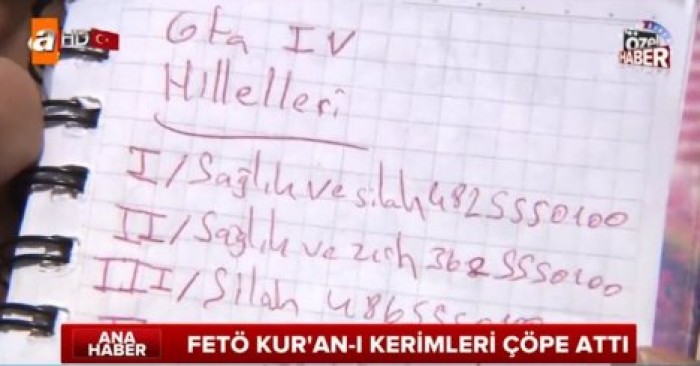 a HD
ÖZEL HABER
Gta IV
Hıllelleri
I/Sağlık ve silah 4825550100
II/Sağlık ve zırh 3625550100
III/Silah 486555
ANA HABER
FETÖ KUR'AN-I KERİMLERİ ÇÖPE ATTI